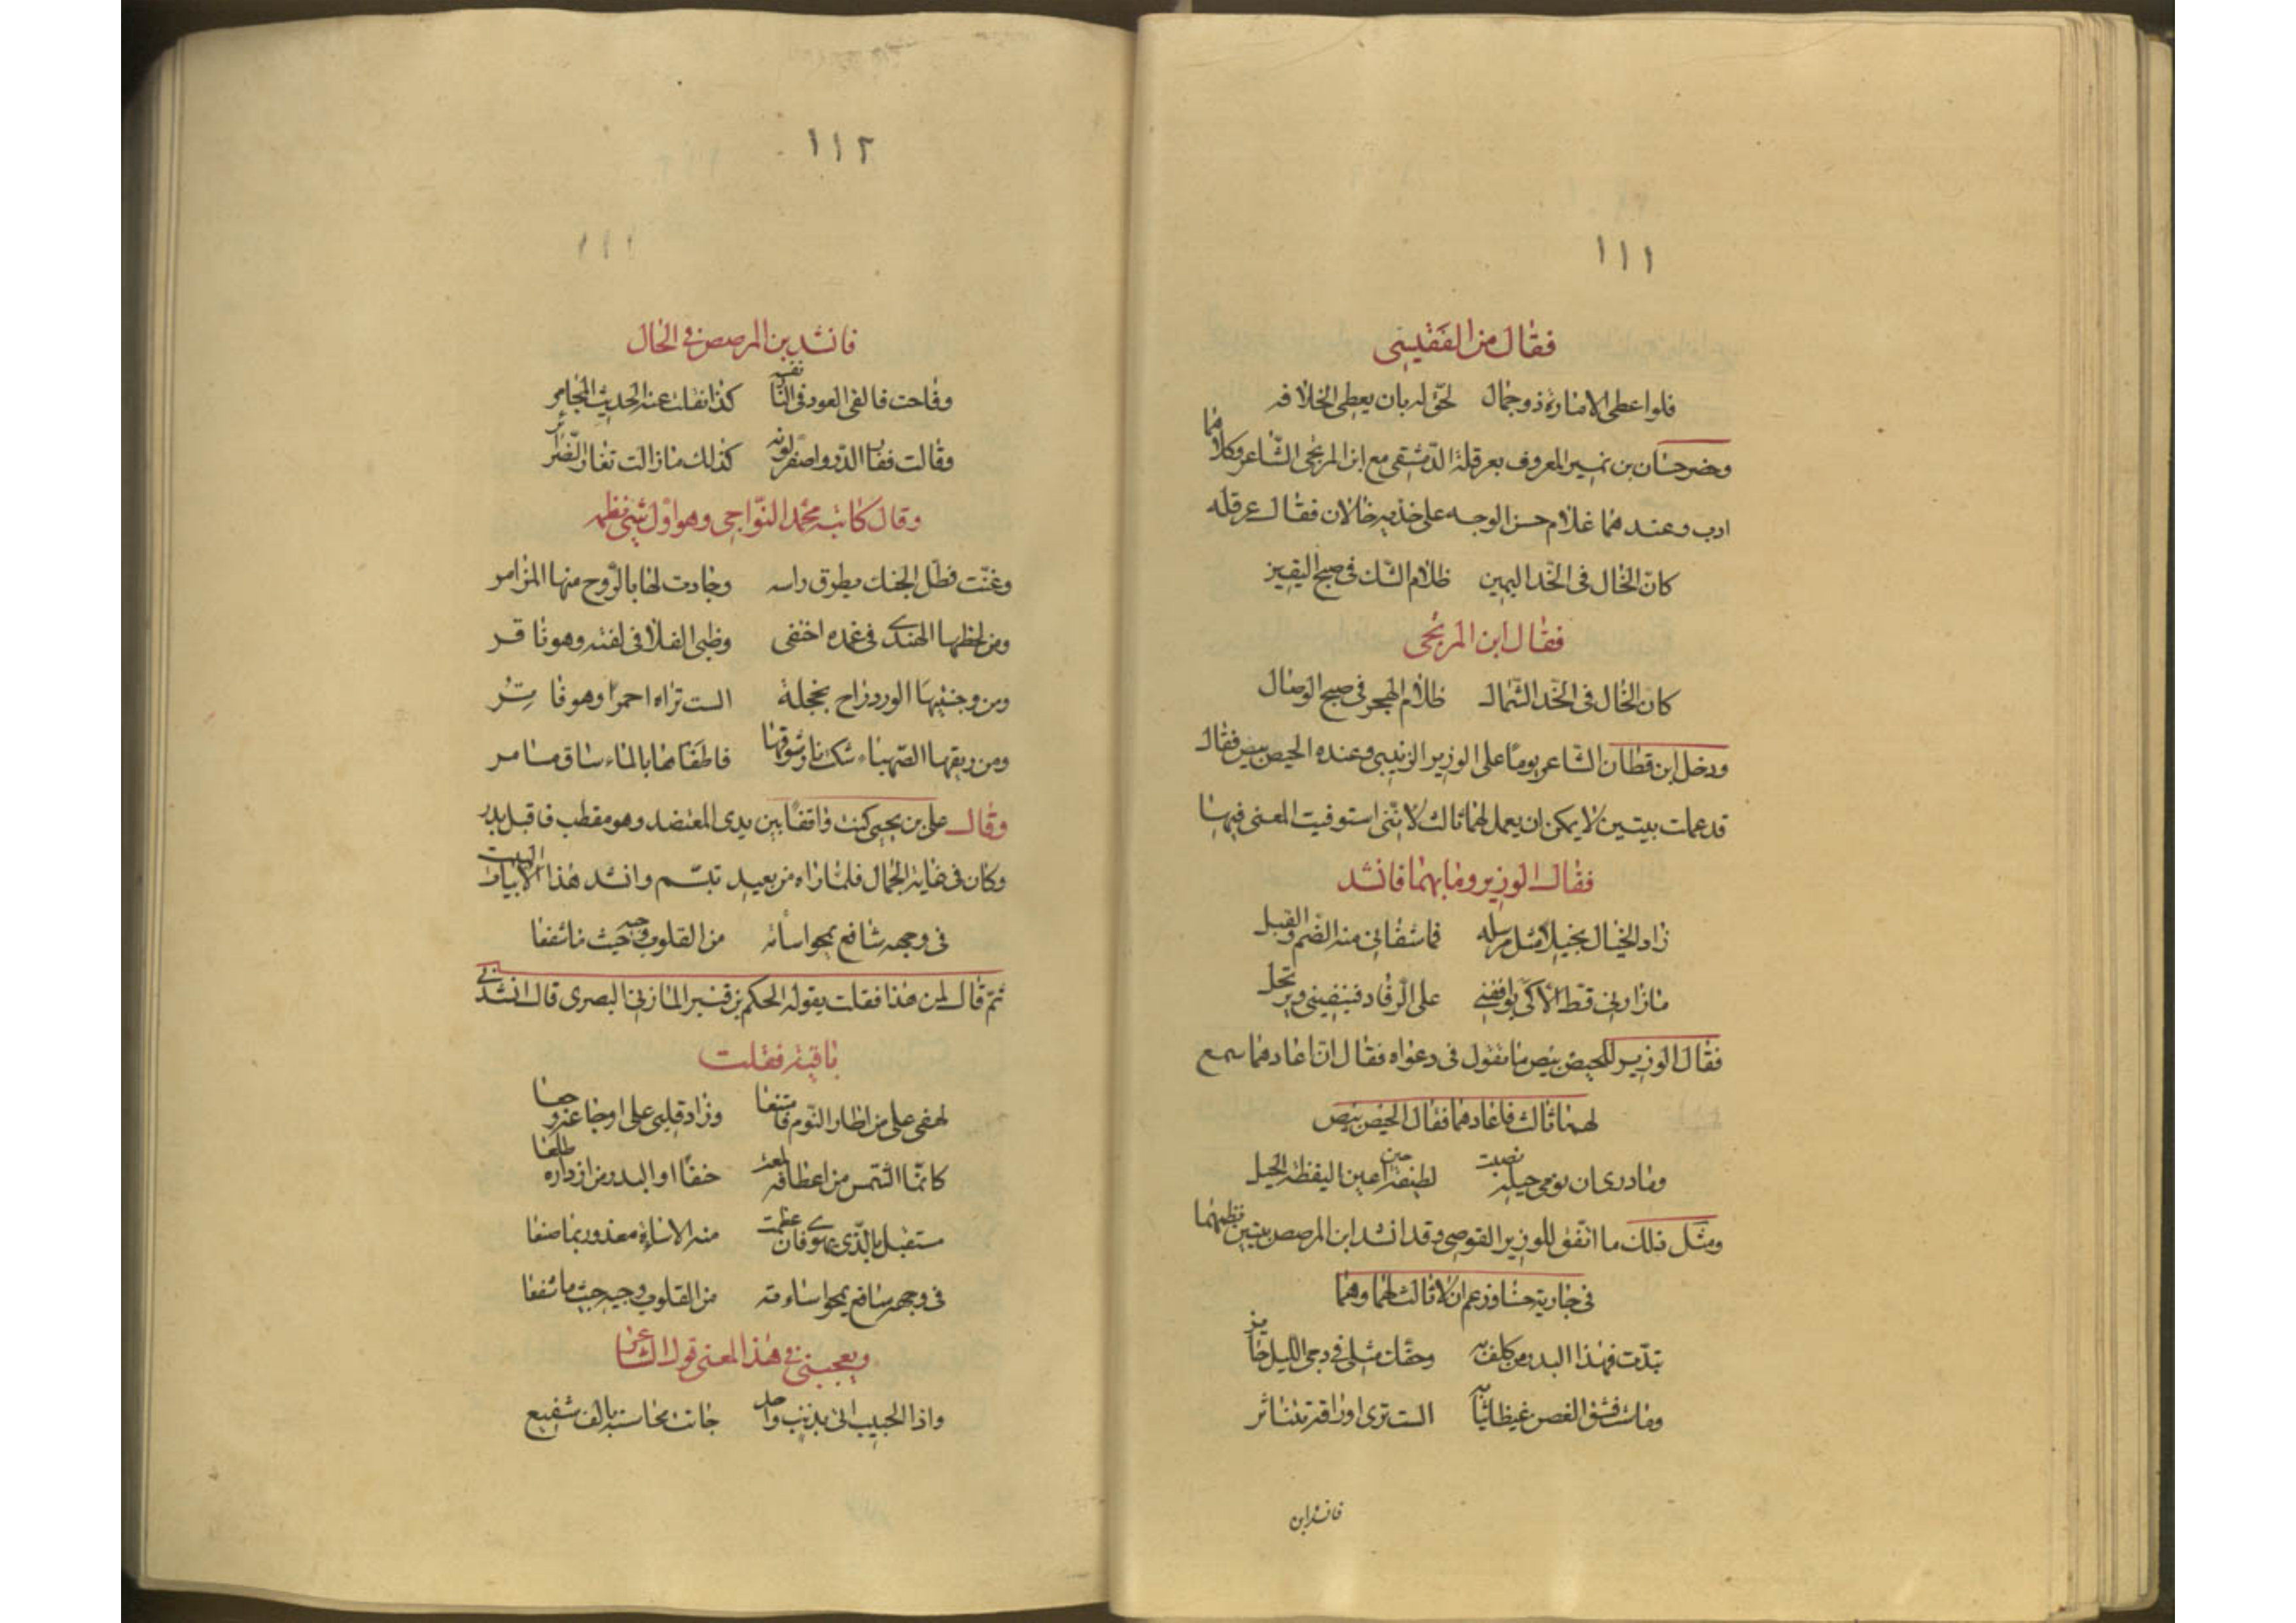 ١١١
فقال من الفقيسى
فلو اعطى الامارة ذو جمال لحق له بان يعطى الخلافه
وحضر حسان بن نمير المعروف بعرقلة الدمشقى مع ابن المريحى الشاعر وكلاهما
ادب وعندهما غلام حسن الوجه على خديه خالان فقال عرقله
كان الخال فى الخد اليمين ظلام الشك فى صبح اليقين
فقال ابن المريحى
كان الخال فى الخد الشمال ظلام الهجر فى صبح الوصال
ودخل ابن قطان الشاعر يوما على الوزير الزينبى وعنده الحيص بيص فقال
قد عملت بيتين لا يمكن ان يعمل لهما ثالث لاننى استوفيت المعنى فيهما
فقال الوزير وما هما فانشد
زاد الخيال بخيلا مثل مرسله فما شفانى منه الضم والقبل
ما زارنى قط الا كى يوافقنى على الرقاد فينفينى ويرتحل
فقال الوزير للحيص بيص ما تقول فى دعواه فقال ان اعادهما سمع
لهما ثالث فاعادهما فقال الحيص بيص
وما درى ان نومى حيلة نصبت لطيفه حين اعيى اليقظة الحيل
ومثل ذلك ما اتفق للوزير القوصى وقد انشد ابن المرصص بيتين نظمهما
فى جارية حسنا وزعم ان لا ثالث لهما وهما
تبدت فهذا البدر من كلف به وحقك مثلى فى دجى الليل حاير
وماست فشق الغصن غيظا ثيابه الست ترى اوراقه تتناثر
فانشد ابن
١١٢
١١١
فانشد بن المرصص فى الحال
وفاحت فالقى العود فى النار نفسه كذا نقلت عنه الحديث المجامر
وقالت فغار الدر واصفر لونه كذلك ما زالت تغار الضرائر
وقال كاتبه محمد النواجى وهو اول شيئ نظمه
وغنت فظل الجنك يطرق راسه وجادت لها بالروح منها المزامر
ومن لحظها الهندى فى غمده اختفى وظبى الفلا فى لفته وهو نافر
ومن وجنتيها الورد راح بخجلة الست تراه احمرا وهو فاتر
ومن ريقها الصهباء شكت نار شوقها فاطفاها بالماء ساق مسامر
وقال على بن يحيى كنت واقفا بين يدى المعتضد وهو مقطب فاقبل بدر
وكان فى غاية الجمال فلما راه من بعيد تبسم وانشد هذا الابيات البيت
فى وجهه شافع يمحو اسأته من القلوب وجيه حيث ما شفعا
ثم قال لمن هذا فقلت يقوله الحكم بن قنبر المازنى البصرى قال انشدنى
باقيه فقلت
لهفى على من اطار النوم فامتنعا وزاد قلبى على اوجاعه وجعا
كانما الشمس من اعطافه لمعت حسنا او البدر من ازراره طلعا
مستقبل بالذى يهوى وان عظمت منه الاساءة معذور بما صنعا
فى وجهه شافع يمحو اساءته من القلوب وجيه حيث ما شفعا
ويعجبنى فى هذا المعنى قول الشاعر
واذا الحبيب اتى بذنب واحد جات محاسنه بالف شفيع